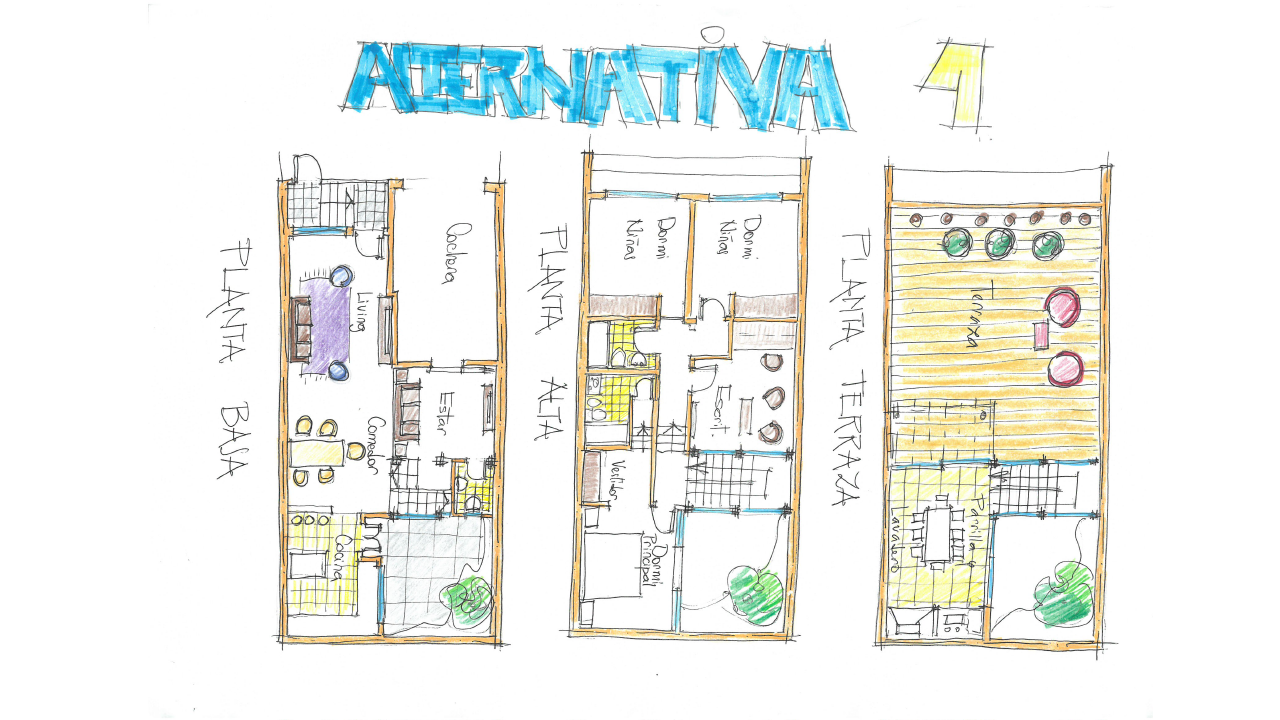 ALTERNATIVA 1
PLANTA BAJA
Cochera
Living
Estar
Comedor
Cocina
PLANTA ALTA
Dormi
Niñas
Dormi
Niños
Escrit.
Vestidor
Dormi,
Principal
PLANTA TERRAZA
Terraza
Parrilla
Lavadero